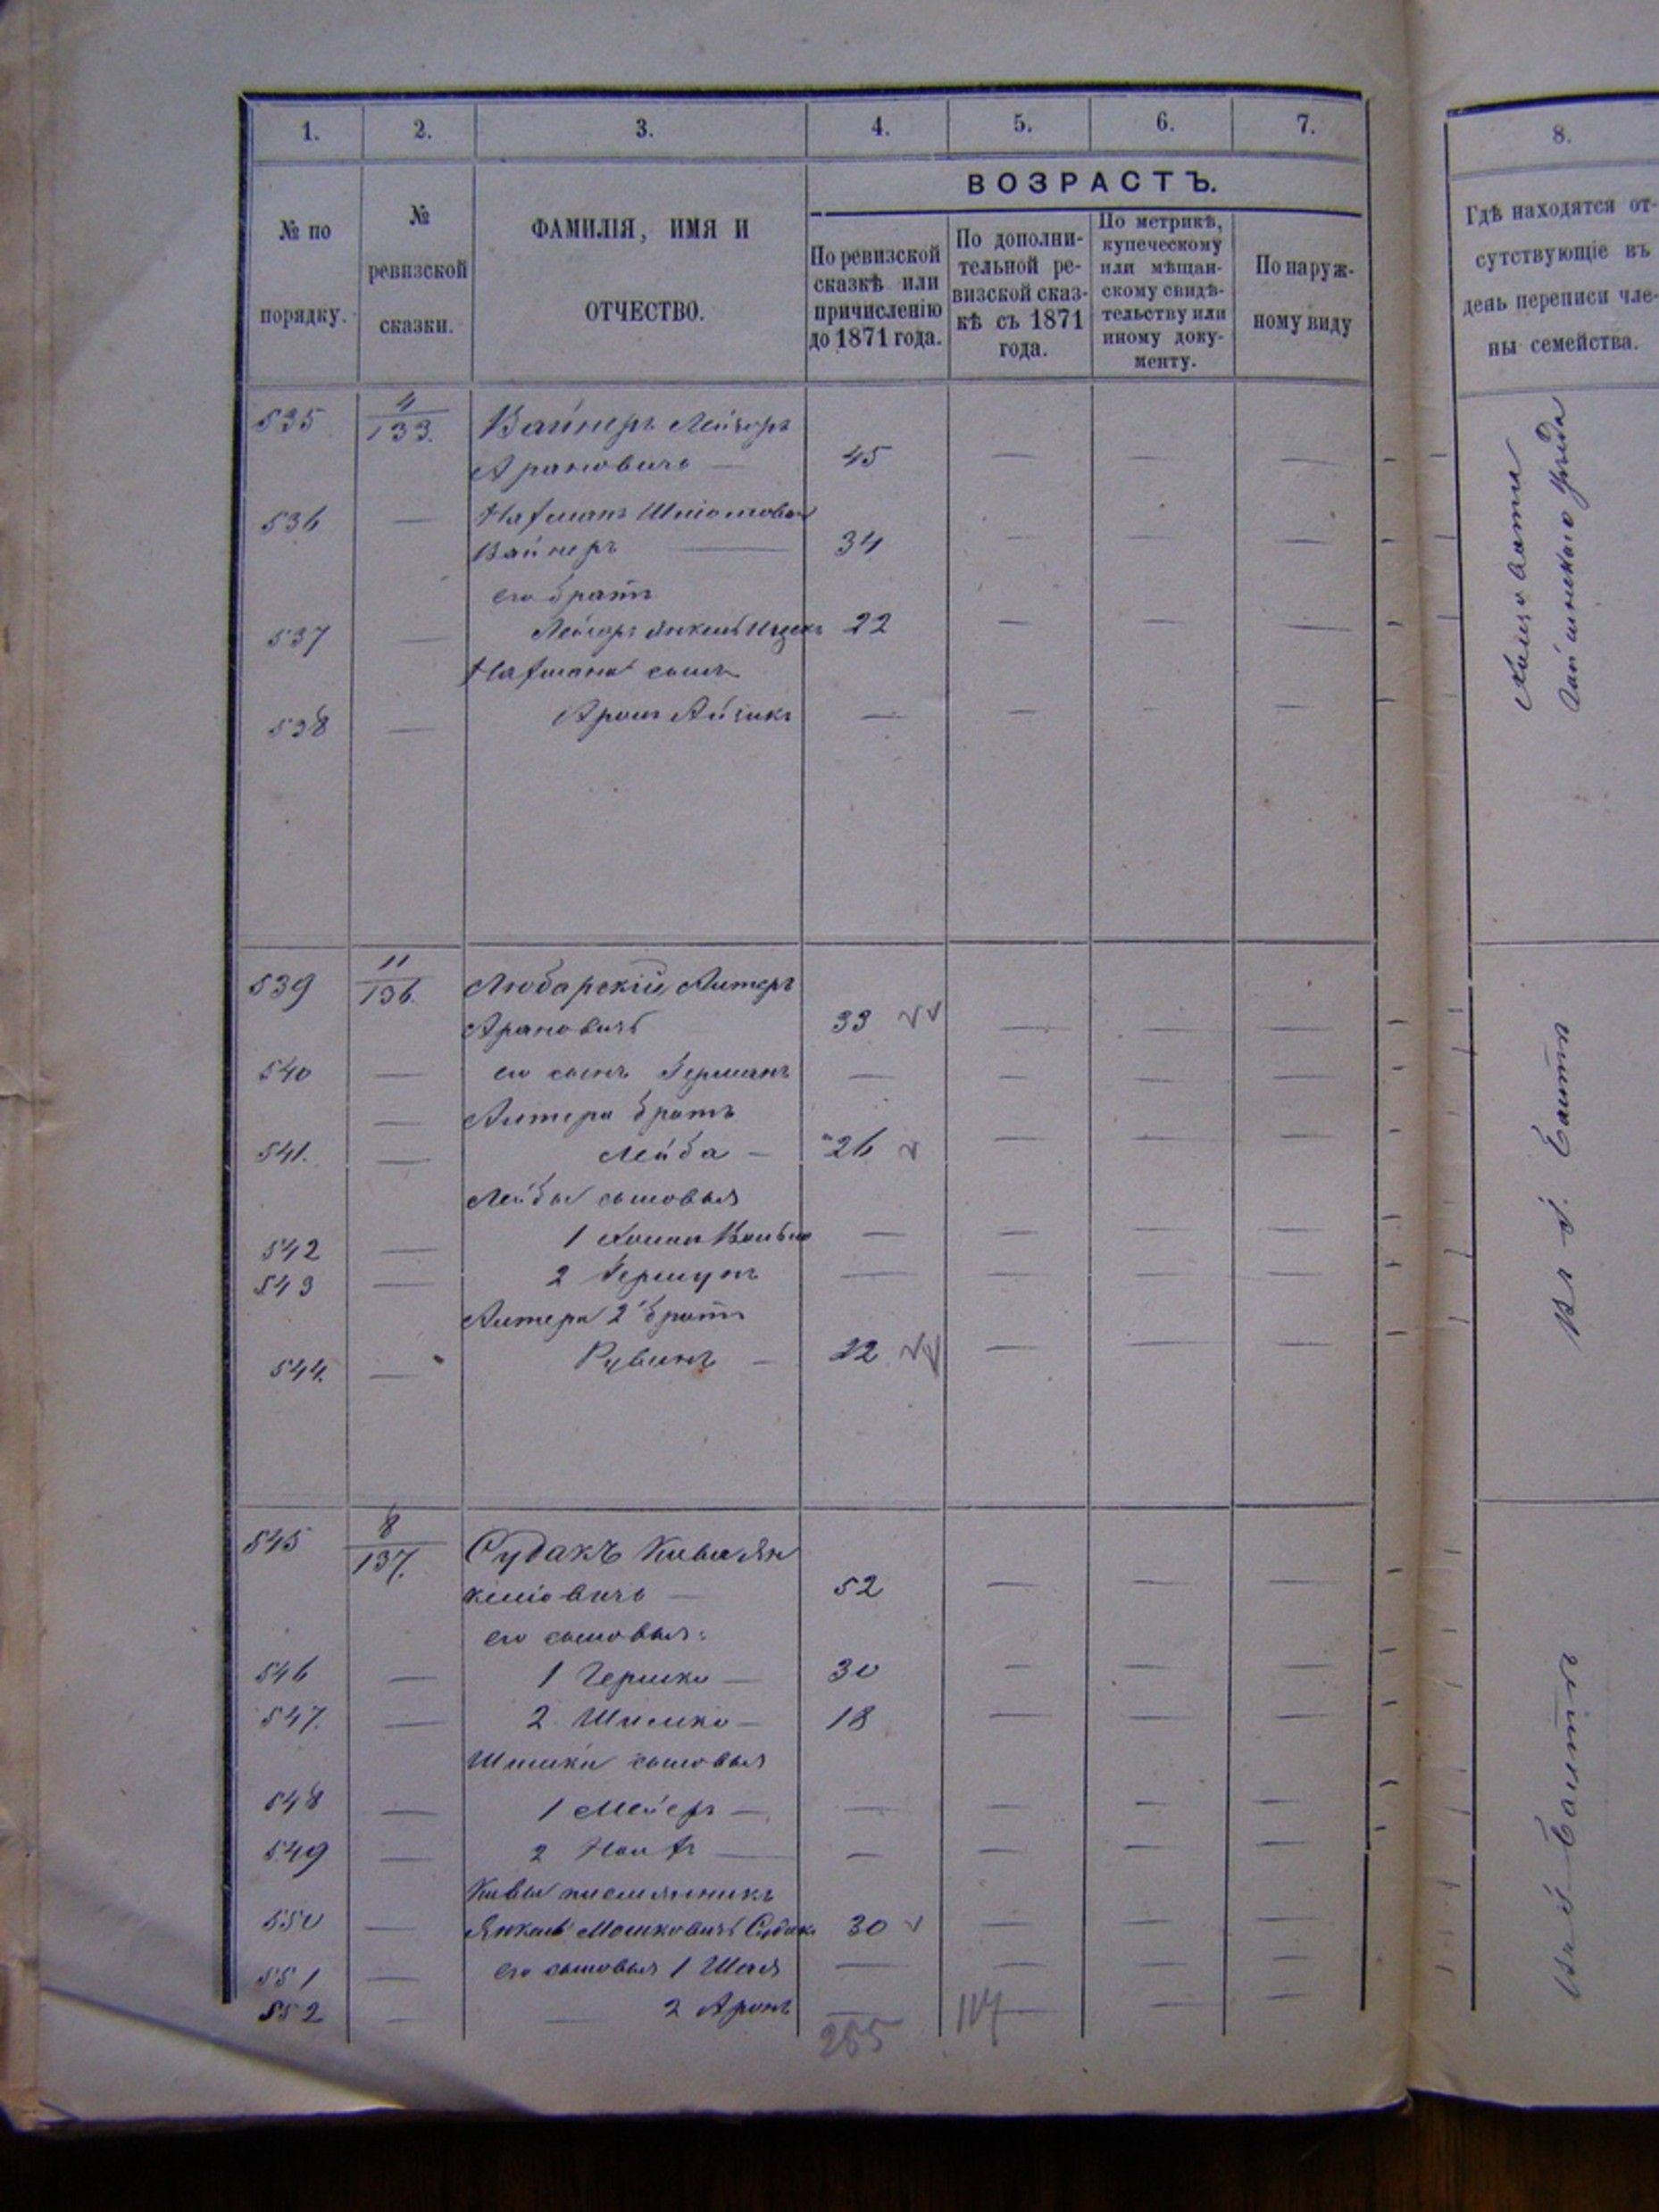 1. 2. 3. 4. 5. 6. 7. 8.
ВОЗРАСТЪ.
№ по порядку.
№ ревизской сказки.
ФАМИЛІЯ, ИМЯ И
ОТЧЕСТВО.
По ревизской
сказкѣ или
причисленію
до 1871 года.
По дополни-
тельной ре-
визской сказ-
кѣ съ 1871
года.
По метрикѣ,
купеческому
или мѣщан-
скому свидѣ-
тельству или
иному доку-
менту.
По наруж-
ному виду
Гдѣ находятся от-
сутствующіе въ
день переписи чле-
ны семейства.
535 4/133. Вайнеръ Лейзоръ
Ароновичъ — 45 — — —
536 — Нафтманъ
Вайнеръ — 34 — — —
его братъ
537 — Лейзоръ Янкель Ицекъ 22 — — —
сынъ
538 — Аронъ Айзикъ — — — —
539 11/136. Любарскій Алтеръ
Ароновичъ 33 — — —
540 — его сынъ Германъ — — — —
— Алтера братъ
541. — Лейба — 26 — — —
Лейбы сыновья
542 — 1 — — — —
543 — 2 Гершунъ — — — —
Алтера 2й братъ
544. — Рувинъ — 22 — — —
въ г. Балтѣ
545 8/137. Судакъ Кива Ян
келіовичъ — 52 — — —
его сыновья:
546 — 1 Гершко — 30 — — —
547. — 2 Шимко — 18 — — —
Шимки сыновья
548 — 1 Мейеръ — — — — —
549 — 2 — — — — —
Кивы племянникъ
550 — Янкель Мошковичъ Судакъ 30 — — —
551 — его сыновья 1 Шая — — — —
552 — — 2 Аронъ — — — —
265 117
въ г. Балтѣ